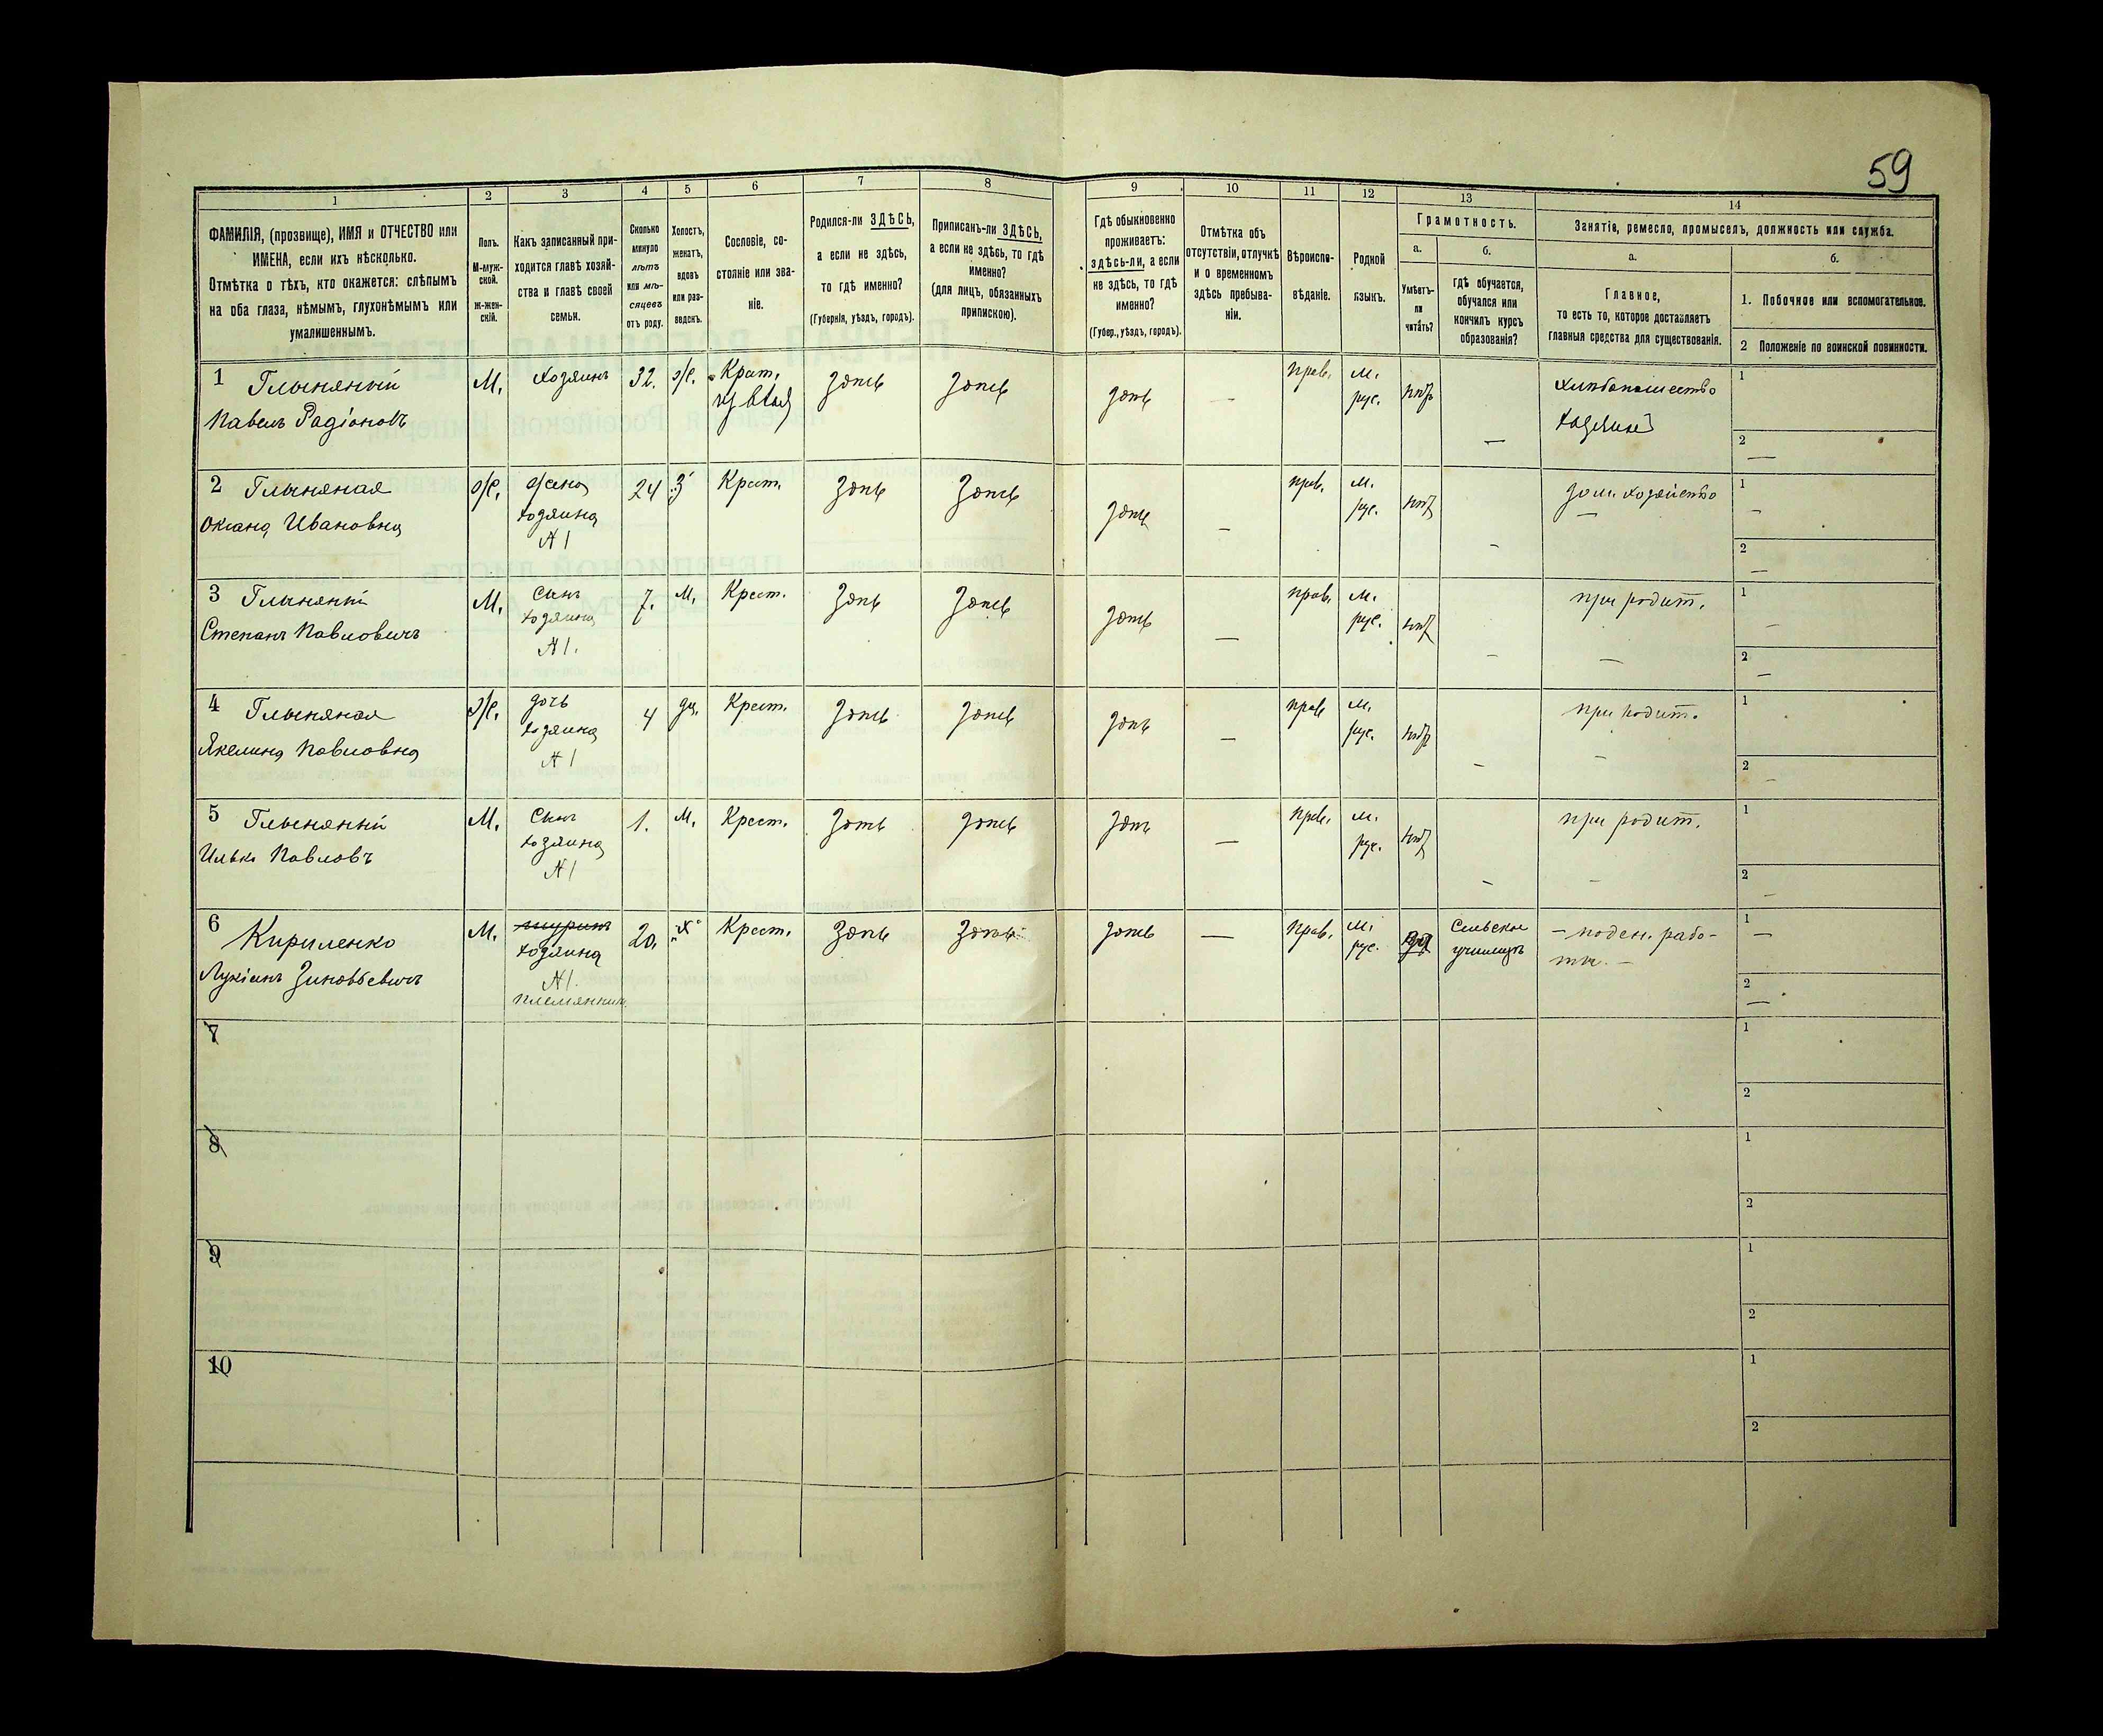 59
1
2
3
4
5
6
7
8
9
10
11
12
13
14
ФАМИЛІЯ, (прозвище), ИМЯ и ОТЧЕСТВО или
ИМЕНА, если ихъ нѣсколько.
Отмѣтка о тѣхъ, кто окажется: слѣпымъ
на оба глаза, нѣмымъ, глухонѣмымъ или
умалишеннымъ.
Полъ.
М-муж-
ской.
Ж-жен-
скій.
Какъ записанный при-
ходится главѣ хозяй-
ства и главѣ своей
семьи.
Сколько
минуло
лѣтъ
или мѣ-
сяцевъ
отъ роду.
Холостъ,
женатъ,
вдовъ
или раз-
веденъ.
Сословіе, со-
стояніе или зва-
ніе.
Родился-ли ЗДѢСЬ,
а если не здѣсь,
то гдѣ именно?
(Губернія, уѣздъ, городъ).
Приписанъ-ли ЗДѢСЬ,
а если не здѣсь, то гдѣ
именно?
(для лицъ, обязанныхъ
припискою).
Гдѣ обыкновенно
проживаетъ:
здѣсь-ли, а если
не здѣсь, то гдѣ
именно?
(Губер., уѣздъ, городъ).
Отмѣтка объ
отсутствіи, отлучкѣ
и о временномъ
здѣсь пребыва-
ніи.
Вѣроиспо-
вѣданіе.
Родной
языкъ.
Грамотность.
а.
б.
Умѣетъ-
ли
читать?
гдѣ обучается,
обучался или
кончилъ курсъ
образованія?
Занятіе, ремесло, промыселъ, должность или служба.
а.
б.
Главное,
то есть то, которое доставляетъ
главныя средства для существованія.
1. Побочное или вспомогательное.
2 Положеніе по воинской повинности.
1 Глыняный М. Хозяинъ 32. ж. Крест. здѣсь здѣсь здѣсь — прав. м. рус. нѣтъ — хлѣбопашество 1
Павелъ Радіоновъ хозяинъ 2 —
2 Глыняная ж. жена хозяина N 1 24 з. Крест. здѣсь здѣсь здѣсь — прав. м. рус. нѣтъ — дом. хозяйство — 1 —
Оксана Ивановна 2 —
3 Глыняный М. Сынъ хозяина N 1. 7. м. Крест. здѣсь здѣсь здѣсь — прав. м. рус. нѣтъ — при родит. — 1 —
Степанъ Павловичъ 2 —
4 Глыняная ж. дочь хозяина N 1 4 дѣ. Крест. здѣсь здѣсь здѣсь — прав. м. рус. нѣтъ — при родит. — 1
Акелина Павловна 2 —
5 Глыняный М. Сынъ хозяина N 1 1. м. Крест. здѣсь здѣсь здѣсь — прав. м. рус. нѣтъ — при родит. — 1
Илько Павловъ 2 —
6 Кириленко М. шуринъ хозяина N 1. племянникъ 20. х. Крест. здѣсь здѣсь здѣсь — прав. м. рус. да Сельское училище — поден. рабо- 1 —
Лукіанъ Зиновьевичъ ты. — 2 —
7 1
2
8 1
2
9 1
2
10 1
2